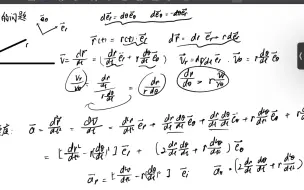 的问题
a⃗θ e⃗r
de⃗r = dθ e⃗θ   de⃗θ = -dθ e⃗r
r⃗(t) = r(t) e⃗r   dr⃗ = dr e⃗r + r de⃗r
v⃗ = dr⃗/dt = (dr/dt e⃗r + r dθ/dt e⃗θ)   v⃗r = dr/dt e⃗r   v⃗θ = r dθ/dt e⃗θ
vr/vθ   dr/dt   = dr/(r dθ)   dr/dθ = r vr/vθ
a⃗ = dv⃗/dt = d²r/dt² e⃗r + dr/dt dθ/dt e⃗θ + dr/dt dθ/dt e⃗θ + r d²θ/dt² e⃗θ + r
= [d²r/dt² - r(dθ/dt)²] e⃗r + (2 dr/dt dθ/dt + r d²θ/dt²) e⃗θ
a⃗r = [d²r/dt² - r(dθ/dt)²] e⃗r   a⃗θ = (2 dr/dt dθ/dt + r d²θ/dt²)